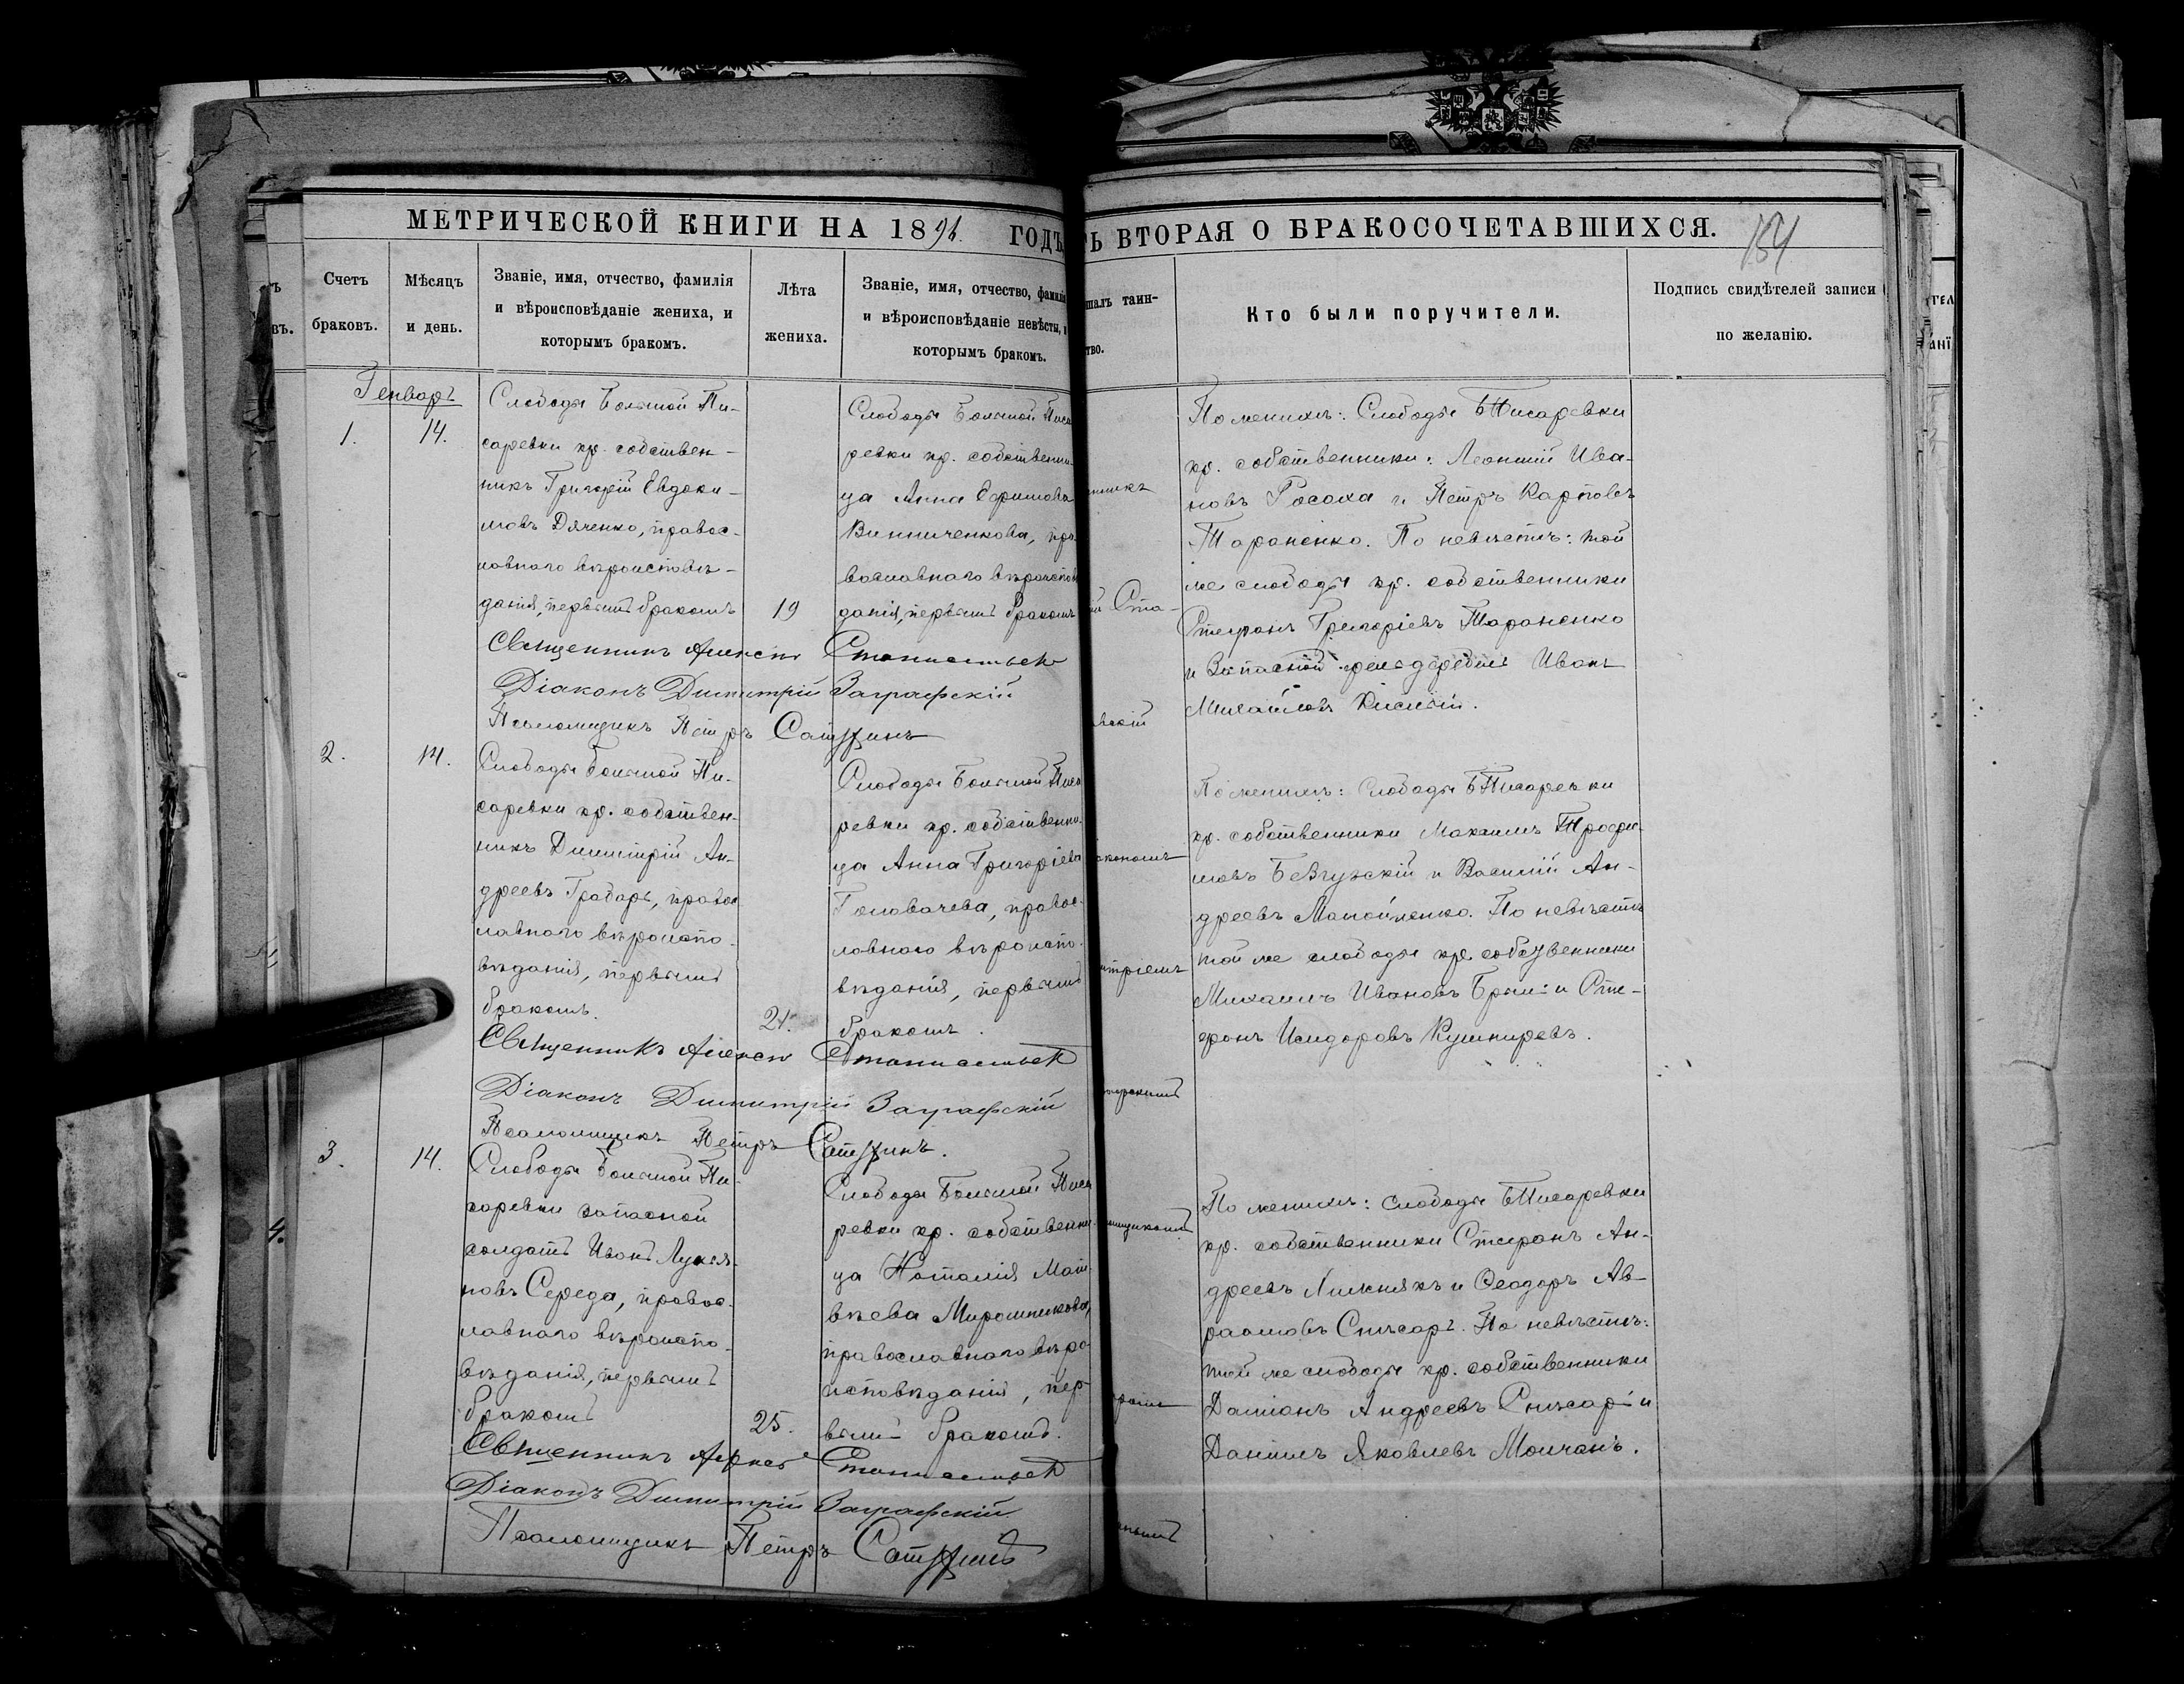 МЕТРИЧЕСКОЙ КНИГИ НА 1896 ГОДЪ
ТЬ ВТОРАЯ О БРАКОСОЧЕТАВШИХСЯ.
Счетъ браковъ.
Мѣсяцъ и день.
Званіе, имя, отчество, фамилія
и вѣроисповѣданіе жениха, и
которымъ бракомъ.
Лѣта
жениха.
Званіе, имя, отчество, фамилія
и вѣроисповѣданіе невѣсты, и
которымъ бракомъ.
шалъ таин-
тво.
Кто были поручители.
Подпись свидѣтелей записи
по желанію.
Генварь
1.
14.
Слободы Большой Пи-
саревки кр. собствен-
никъ Григорій Евдоки-
мовъ Дяченко, правос-
лавнаго вѣроисповѣ-
данія, первымъ бракомъ
19
Слободы Большой Писа
ревки кр. собственни-
ца Анна Ефимова
Винниченкова, пра-
вославнаго вѣроиспов
данія, первымъ бракомъ
По женихѣ: Слободы Б Писаревки
кр. собственники: Леонтій Ива-
новъ Росоха и Петръ Карповъ
Тараненко. По невѣстѣ: той
же слободы кр. собственники
Стефанъ Григоріевъ Тараненко
и Запасной Иванъ
Михайловъ
Священникъ Алексѣй
Діаконъ Димитрій Заграфскій
Псаломщикъ Петръ
2.
14.
Слободы Большой Пи-
саревки кр. собствен-
никъ Димитрій Ан-
дреевъ Грабарь, правос
лавнаго вѣроиспо-
вѣданія, первымъ
бракомъ.
21.
Слободы Большой Писа
ревки кр. собственни-
ца Анна Григоріева
Головачева, правос-
лавнаго вѣроиспо-
вѣданія, первымъ
бракомъ.
По женихѣ: Слободы Б Писаревки
кр. собственники Михаилъ Трофи-
мовъ и Василій Ан-
дреевъ Манойленко. По невѣстѣ
той же слободы кр. собственники
Михаилъ Ивановъ и Сте-
фанъ Исидоровъ Кушниревъ.
Священникъ Алексѣй
Діаконъ Димитрій Заграфскій
Псаломщикъ Петръ
3.
14.
Слободы Большой Пи-
саревки запасной
солдатъ Иванъ Лукья-
новъ Середа, правос-
лавнаго вѣроиспо-
вѣданія, первымъ
бракомъ
25.
Слободы Большой Писа
ревки кр. собственни-
ца Наталія Мат-
вѣева Мирошникова,
православнаго вѣро
исповѣданія, пер-
вымъ бракомъ.
По женихѣ: слободы Б Писаревки
кр. собственники Стефанъ Ан-
дреевъ и Ѳеодоръ Ав-
раамовъ Слѣсарь. По невѣстѣ:
той же слободы кр. собственники
Даміанъ Андреевъ Слѣсарь и
Даніилъ Яковлевъ Молчанъ.
Священникъ Алексѣй
Діаконъ Димитрій Заграфскій
Псаломщикъ Петръ